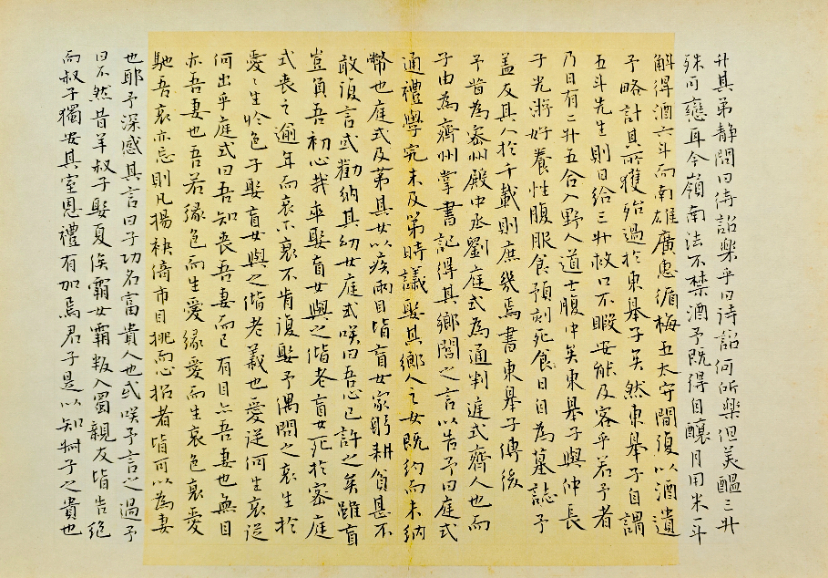 升其弟静問曰待詔樂乎曰待詔何所樂但美醞三升
殊可戀耳今嶺南法不禁酒予既得自釀月用米一斗
斛得酒六斗而南雄廣惠循梅五太守間復以酒遺
予略計其所獲殆過於東皋子矣然東皋子自謂
五斗先生則日給三升救口不暇安能及客乎若予者
乃日有二升五合入野人道士腹中矣東皋子與仲長
子光游好養性腹服食預刻死食日自為墓誌予
蓋及其人於千載則庶幾焉書東皋子傳後
予昔為密州殿中丞劉庭式為通判庭式齊人也而
子由為齊州掌書記得其鄉閭之言以告予曰庭式
通禮學究未及第時議娶其鄉人之女既約而未納
幣也庭式及第其女以疾兩目皆盲女家躬耕貧甚不
敢復言或勸納其幼女庭式咲曰吾心已許之矣雖盲
豈負吾初心哉卒娶盲女與之偕老盲女死於密庭
式喪之逾年而哀不衰不肯復娶予偶問之哀生於
愛愛生於色子娶盲女與之偕老義也愛從何生哀從
何出乎庭式曰吾知喪吾妻而已有目亦吾妻也無目
亦吾妻也吾若緣色而生愛緣愛而生哀色衰愛
馳吾哀亦忘則凡揚袂倚市目挑而心招者皆可以為妻
也耶予深感其言曰子功名富貴人也或咲予言之過予
曰不然昔羊叔子娶夏侯霸女霸叛入蜀親友皆告絕
而叔子獨安其室恩禮有加焉君子是以知叔子之貴也